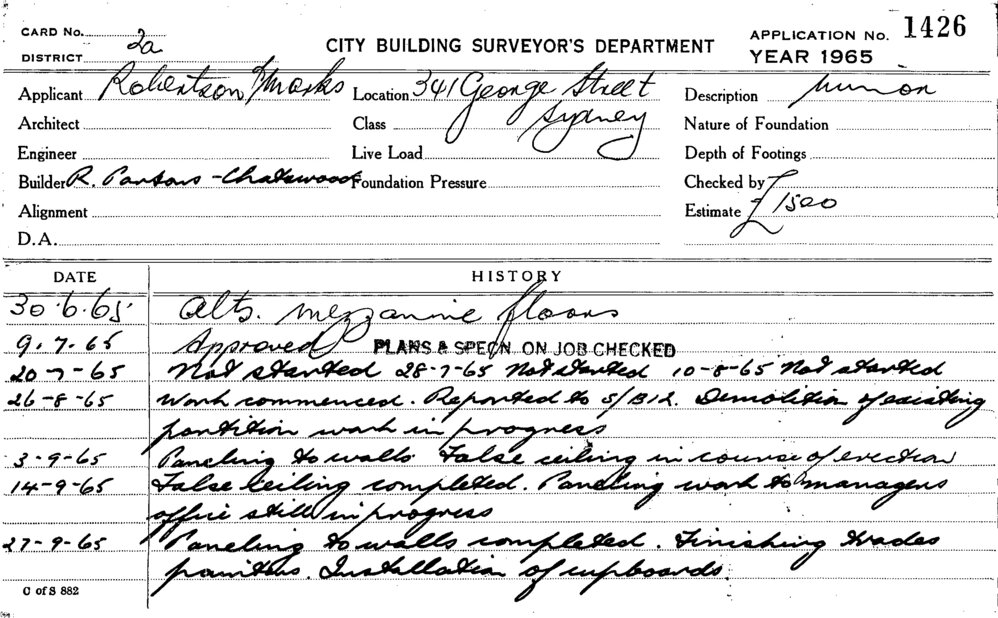 CARD No. 2a
DISTRICT
CITY BUILDING SURVEYOR'S DEPARTMENT
APPLICATION No. 1426
YEAR 1965
Applicant Robertson & Marks Location 341 George Street Description minor
Architect Class Sydney Nature of Foundation
Engineer Live Load Depth of Footings
Builder R. Parsons - Chatswood Foundation Pressure Checked by
Alignment Estimate £1500
D.A.
DATE HISTORY
30.6.65. Alts. mezzanine floors
9.7.65 Approved PLANS & SPECN. ON JOB CHECKED
20-7-65 Not started 28-7-65 Not started 10-8-65 Not started
26-8-65 Work commenced. Reported to S/B12. Demolition of existing
partition work in progress
3-9-65 Paneling to walls False ceiling in course of erection
14-9-65 False ceiling completed. Paneling work to managers
office still in progress
27-9-65 Paneling to walls completed. Finishing trades
painters. Installation of cupboards.
C of S 882